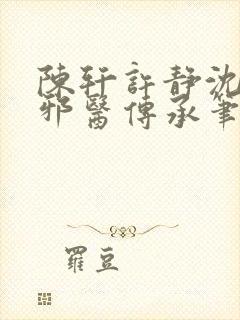 陳軒許靜沈
邪醫傳承筆
羅豆